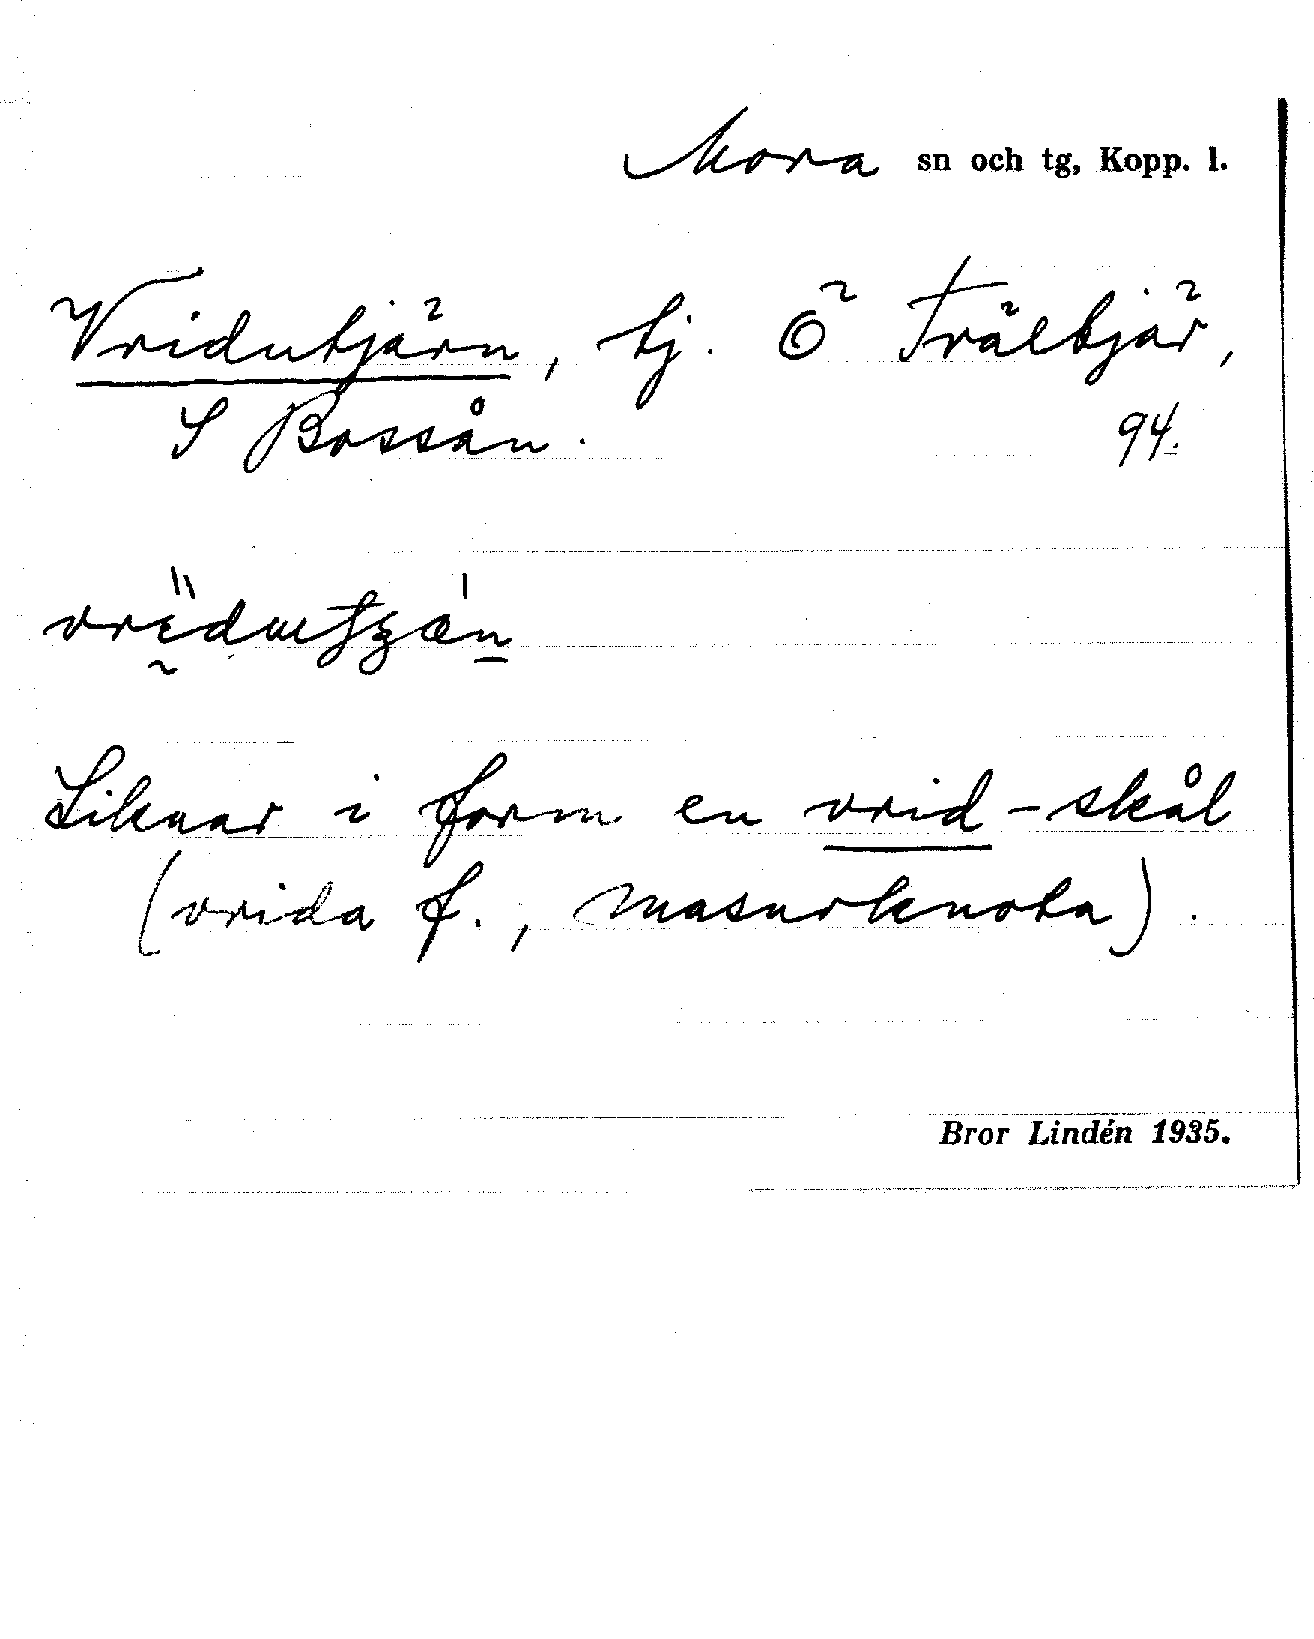 Mora sn och tg, Kopp. l.
Vridutjärn, tj. Ö Trältjär,
S Bossån. 94.
Liknar i form en vrid-skål
(vrida f., masurknota).
Bror Lindén 1935.